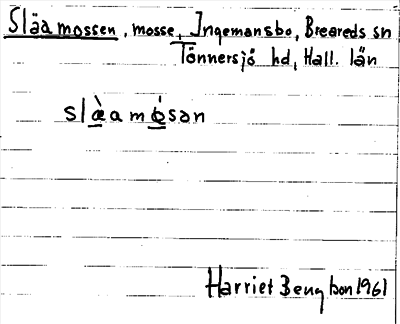 Släamossen, mosse, Ingemansbo, Breareds sn
Tönnersjö hd, Hall. län
slæ̀amò̱sən
Harriet Bengtson 1961